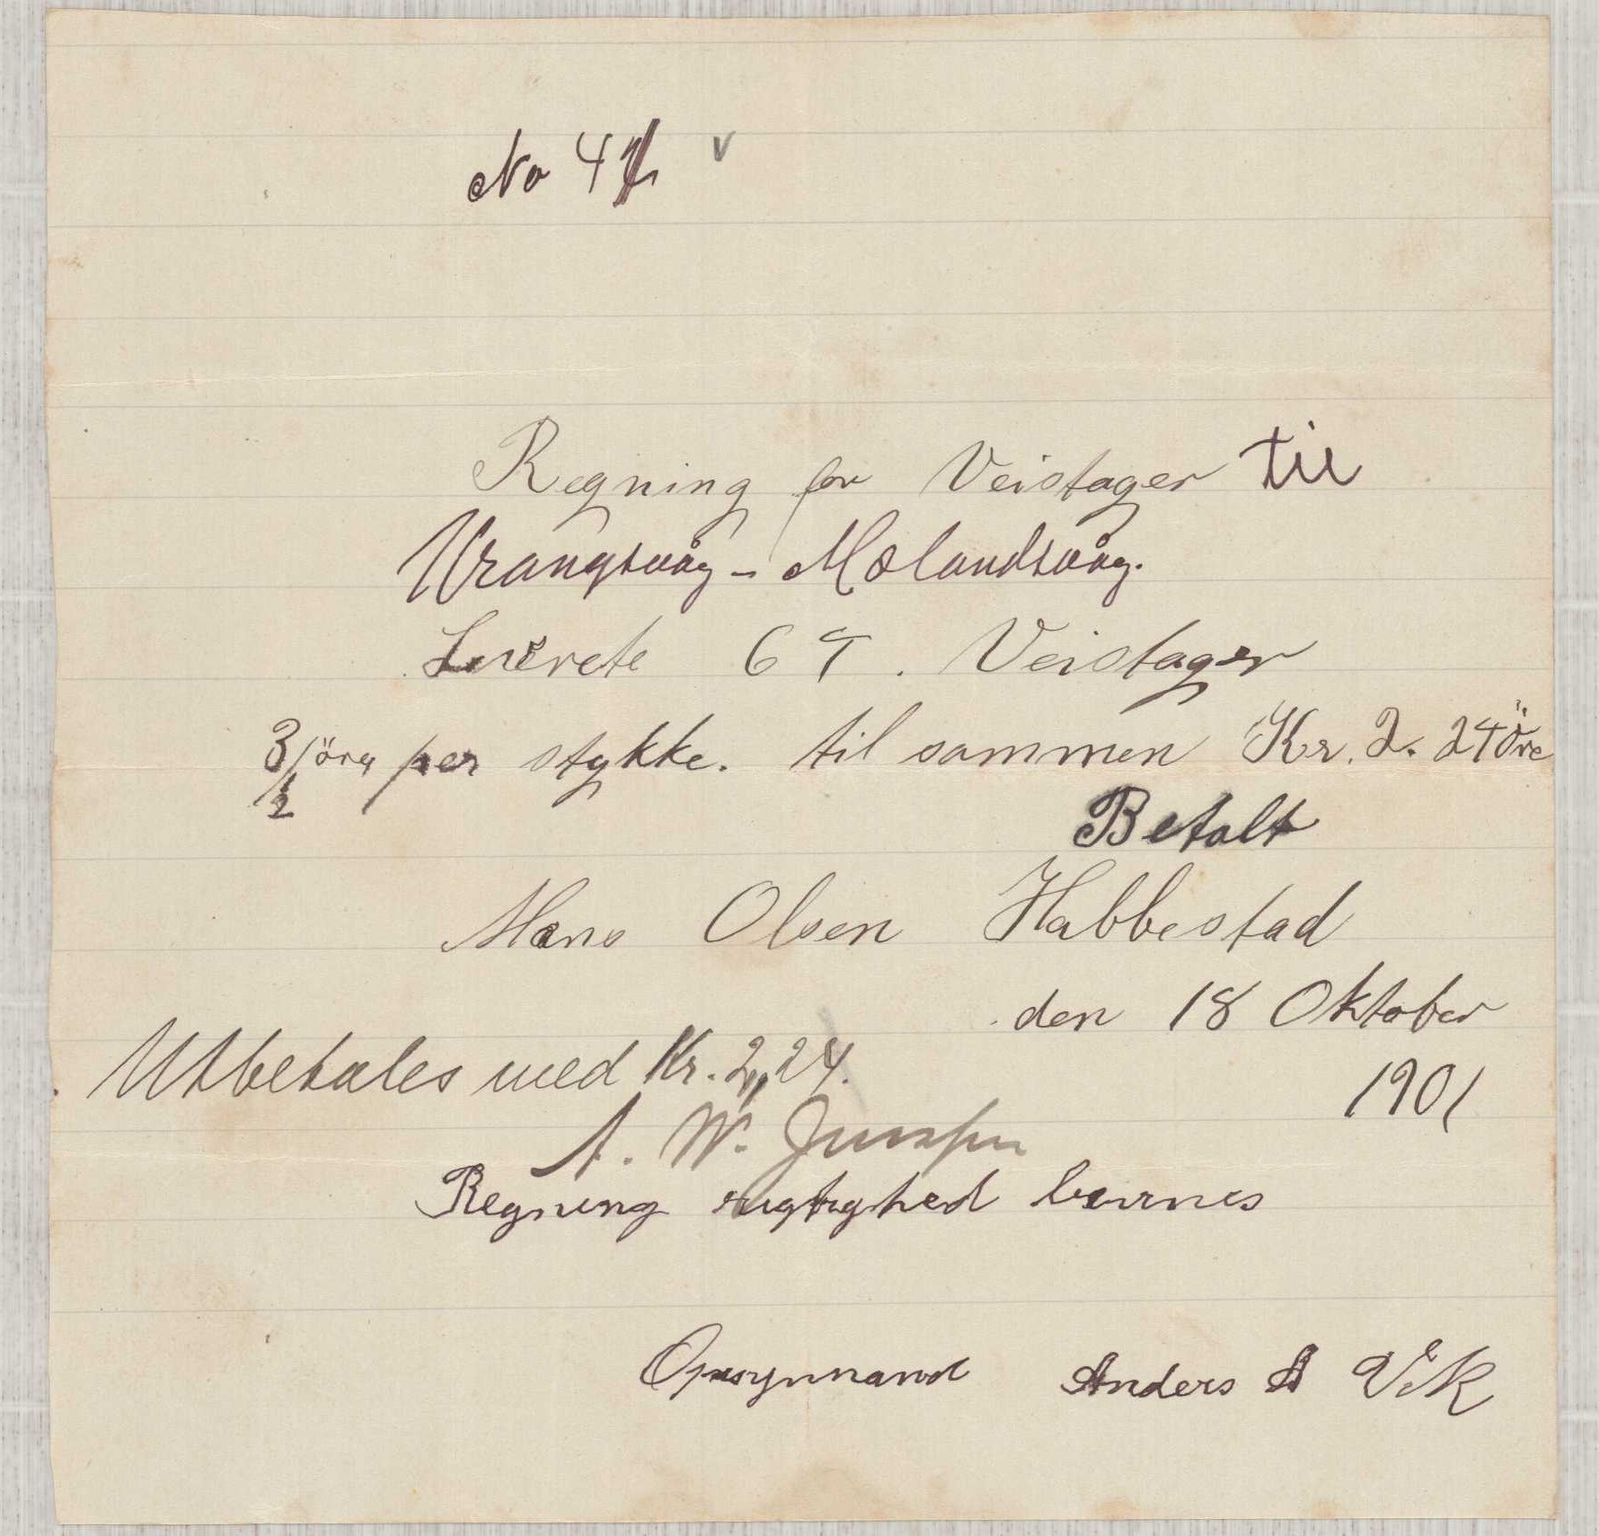 No 4
v
Regning for Veistager til
Vrangsvåg - Molandsvåg.
Leverete 64. Veistager
3 1/2 öre per stykke. til sammen Kr. 2. 24 Öre
Betalt
Hans Olsen Habbestad
den 18 Oktober
1901
Utbetales med Kr. 2,,24.
A. W.
Regning rigtighed
Opsynmand Anders A Vik